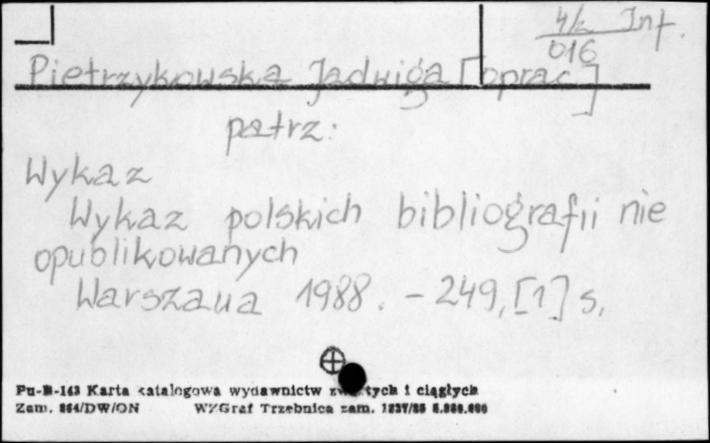 4/2 Inf.
016
Pietrzykowska Jadwiga [oprac]
patrz:
Wykaz
Wykaz polskich bibliografii nie
opublikowanych
Warszawa 1988. - 249,[1] s.
Pu-B-143 Karta katalogowa wydawnictw zwartych i ciągłych
Zam. 864/DW/ON WZGraf Trzebnica zam.